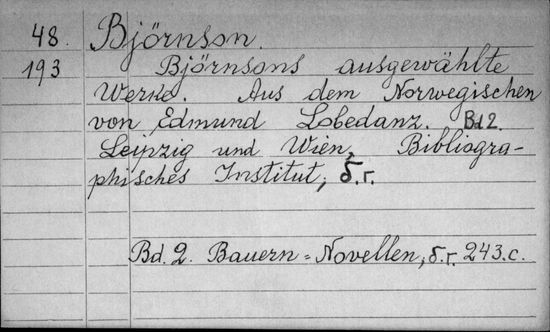 48. Björnson.
193 Björnsons ausgewählte
Werke. Aus dem Norwegischen
von Edmund Lobedanz. Bd 2.
Leipzig und Wien, Bibliogra-
phisches Institut, б.г.
Bd. 2. Bauern=Novellen, б.г. 243.c.